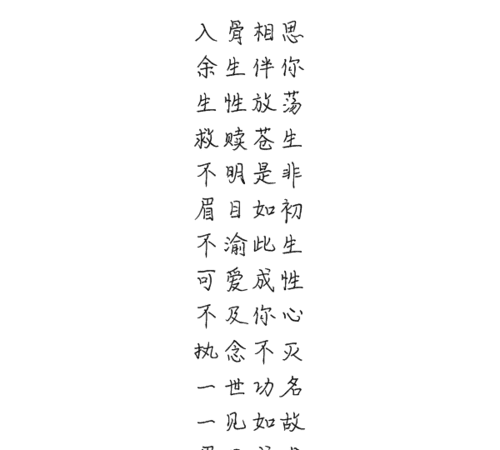 入骨相思
余生伴你
生性放荡
救赎苍生
不明是非
眉目如初
不渝此生
可爱成性
不及你心
执念不灭
一世功名
一见如故